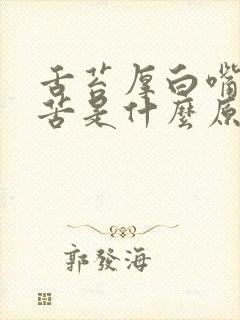 舌苔厚白嘴
苦是什麼原
郭發海